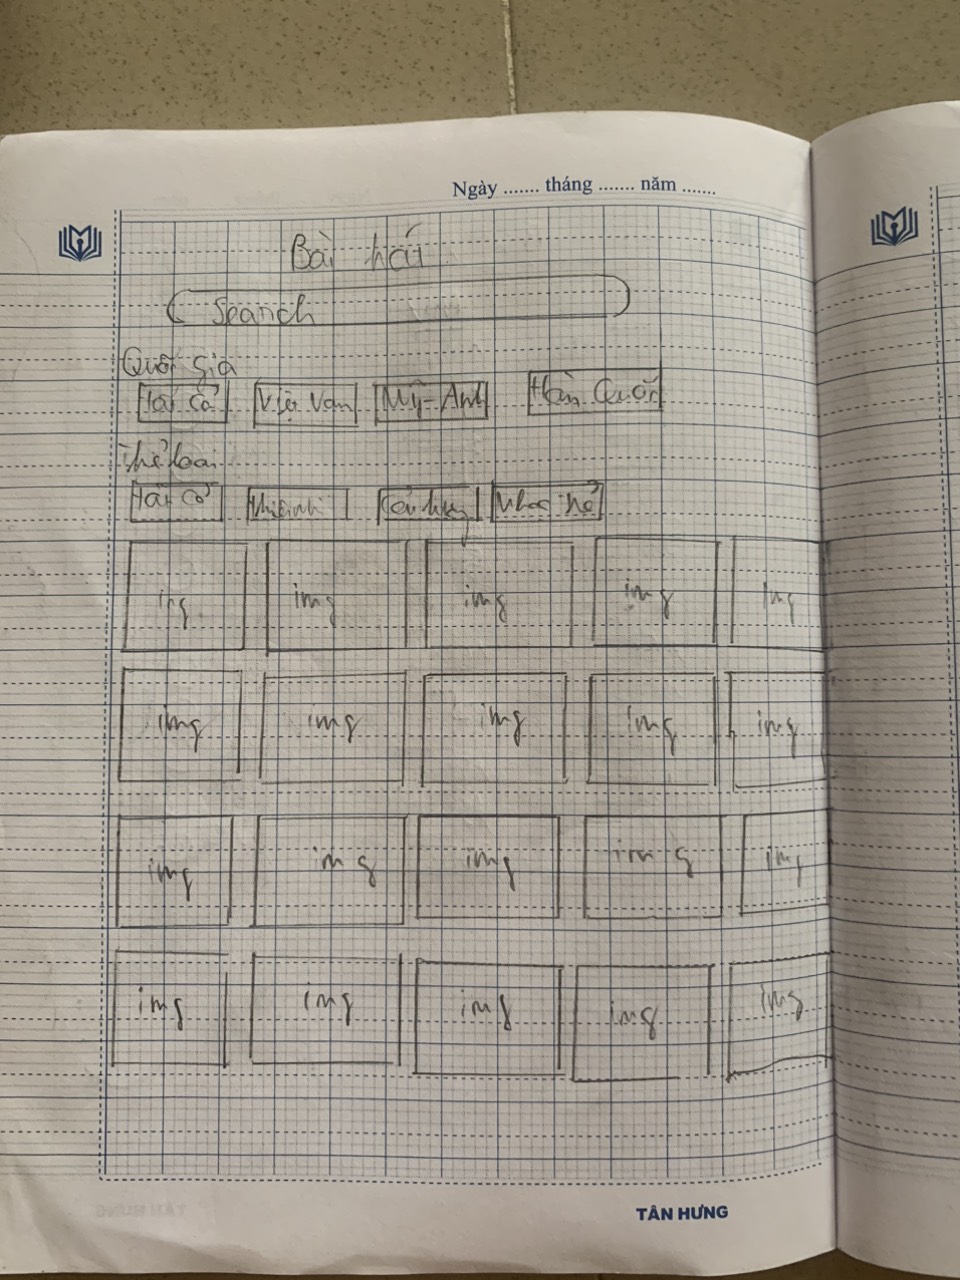 Ngày ....... tháng ....... năm .......
Bài hát
Search
Quốc gia
Tất cả Việt Nam Mỹ-Anh Hàn Quốc
Thể loại
Tất cả Nhạc trẻ
img img img img img
img img img img img
img img img img img
img img img img img
TÂN HƯNG